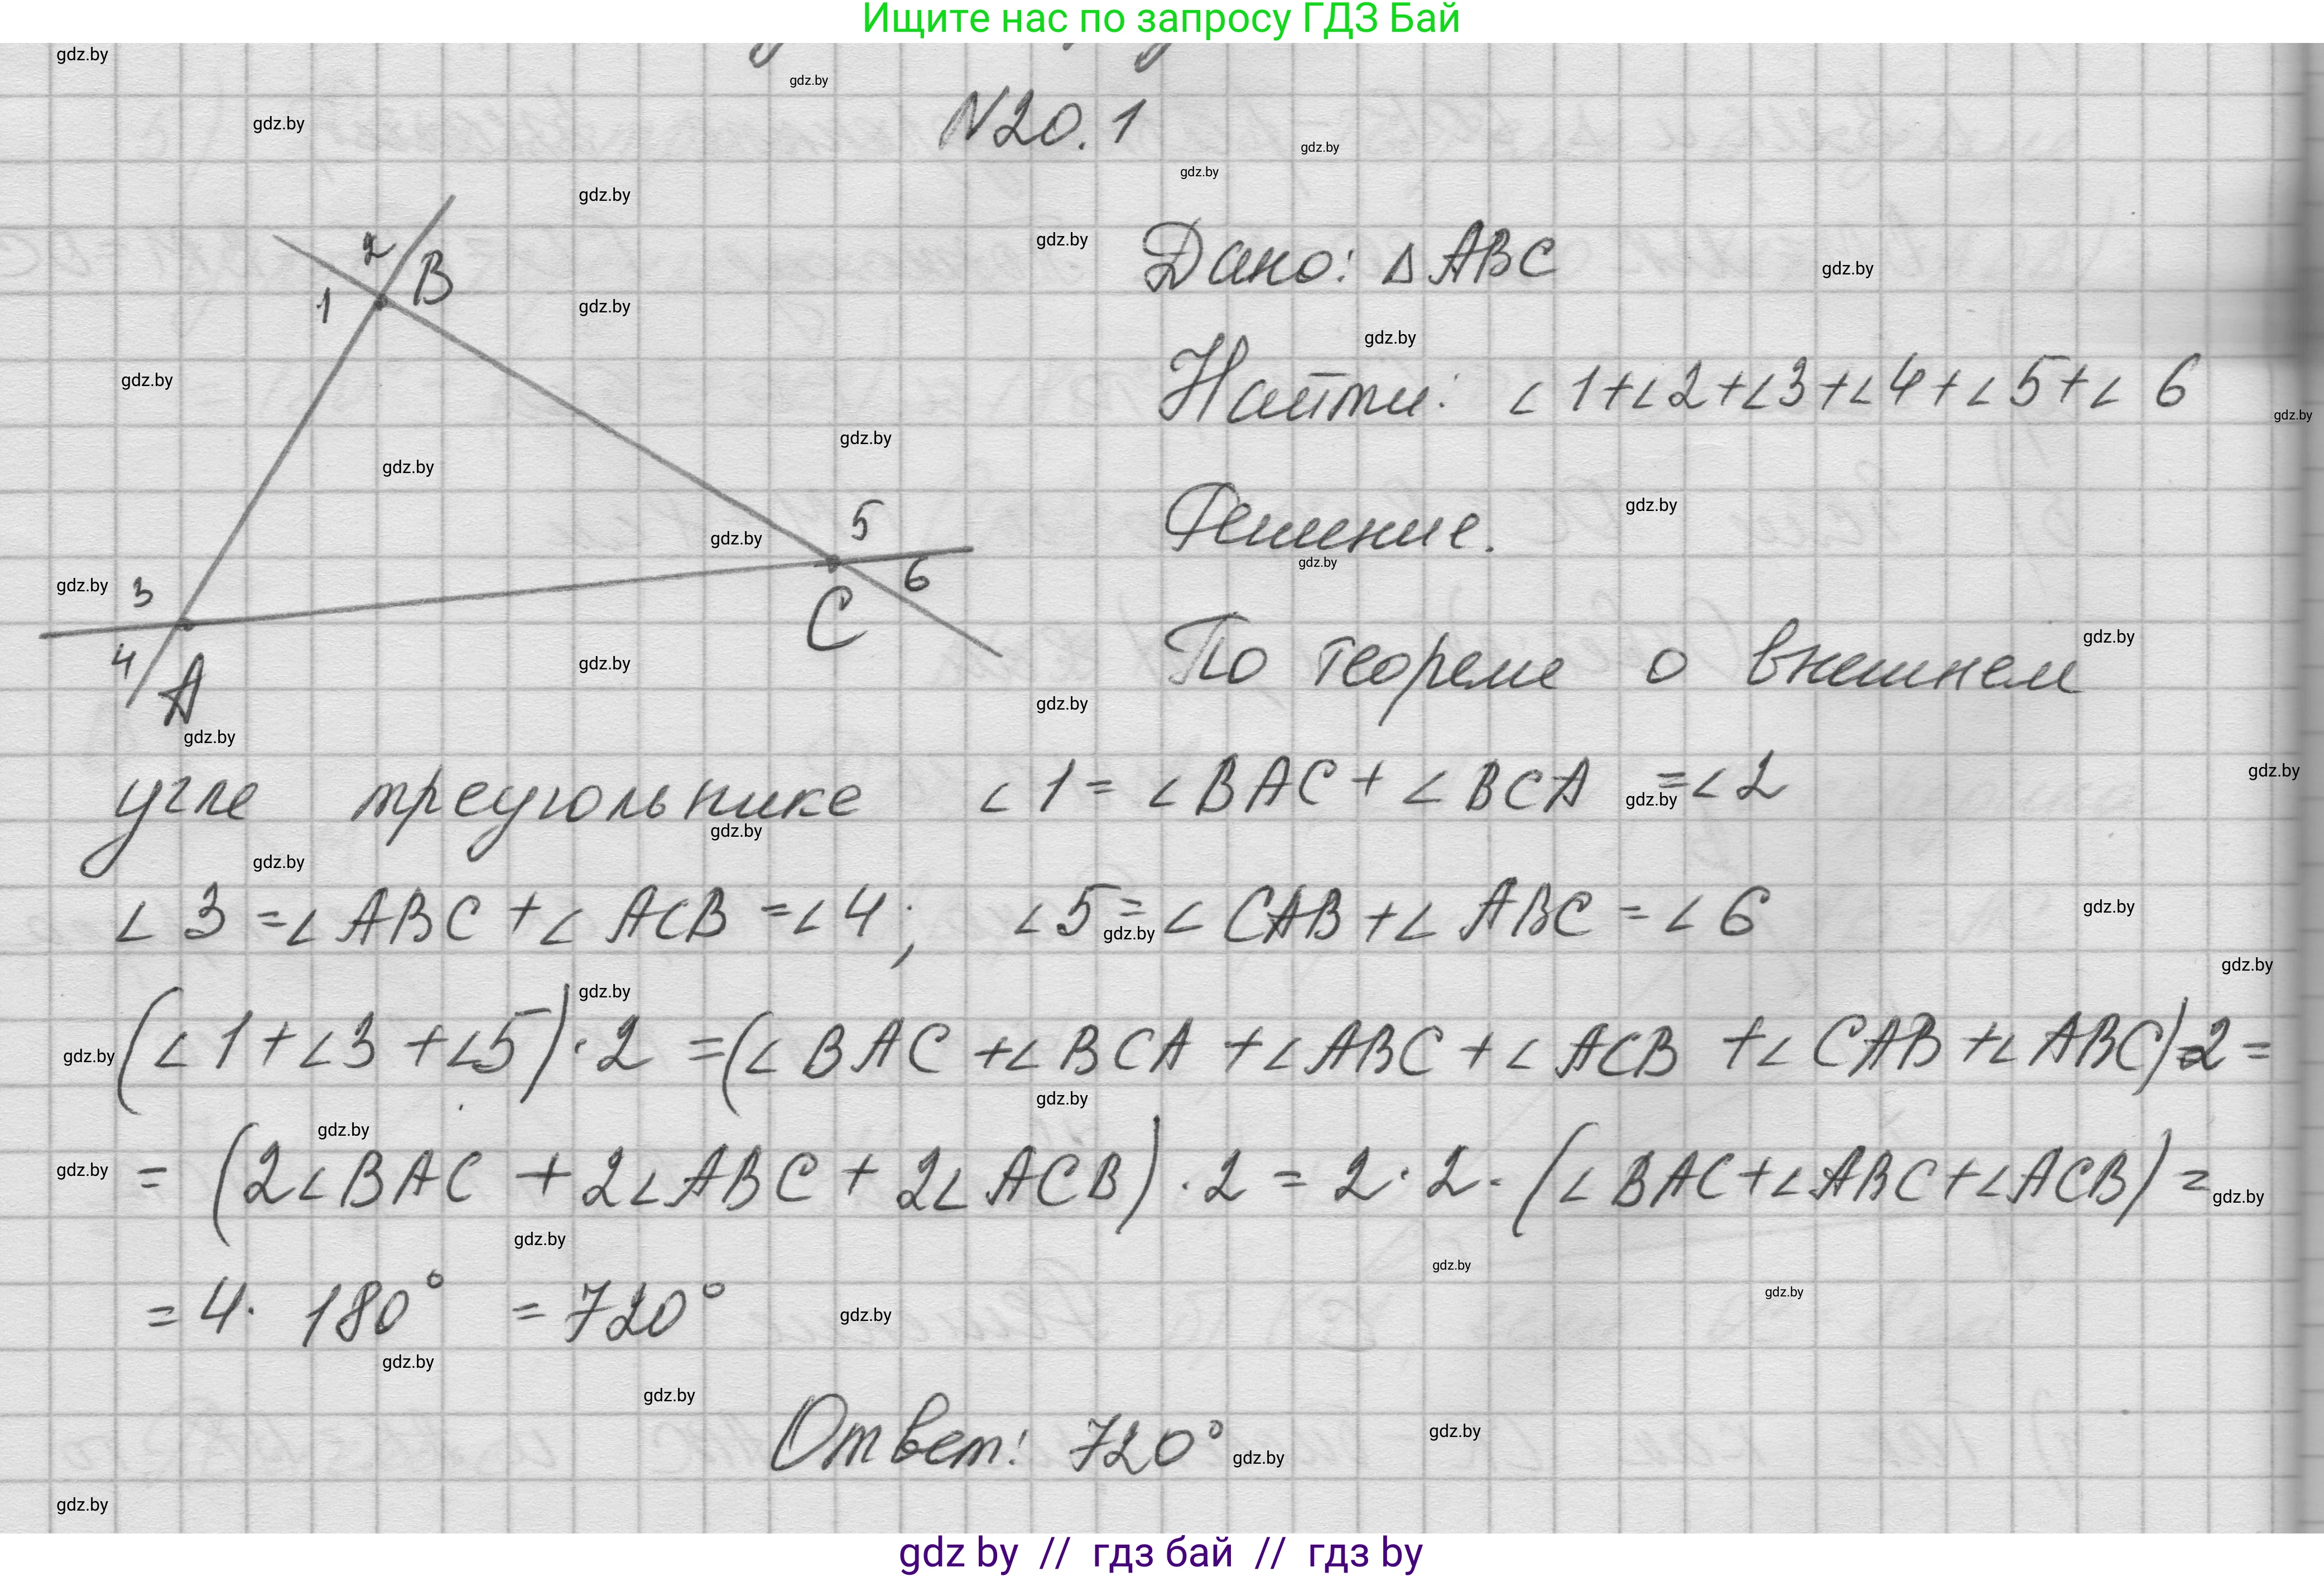 Ищите нас по запросу ГДЗ Бай
N20.1
Дано: △ ABC
Найти: ∠1+∠2+∠3+∠4+∠5+∠6
Решение.
По теореме о внешнем
угле треугольнике ∠1 = ∠BAC + ∠BCA = ∠2
∠3 = ∠ABC + ∠ACB = ∠4; ∠5 = ∠CAB + ∠ABC = ∠6
(∠1+∠3+∠5)·2 = (∠BAC +∠BCA +∠ABC +∠ACB +∠CAB +∠ABC)·2 =
= (2∠BAC + 2∠ABC + 2∠ACB)·2 = 2·2·(∠BAC+∠ABC+∠ACB) =
= 4· 180° = 720°
Ответ: 720°
2
B
1
5
6
3
C
4
A
gdz.by
gdz by // гдз бай // гдз by